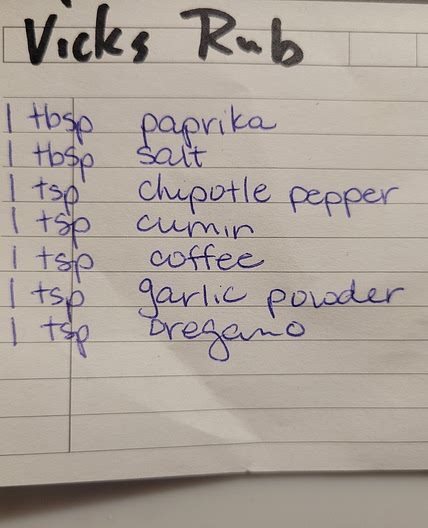 Vicks Rub
1 tbsp paprika
1 tbsp salt
1 tsp chipotle pepper
1 tsp cumin
1 tsp coffee
1 tsp garlic powder
1 tsp oregano